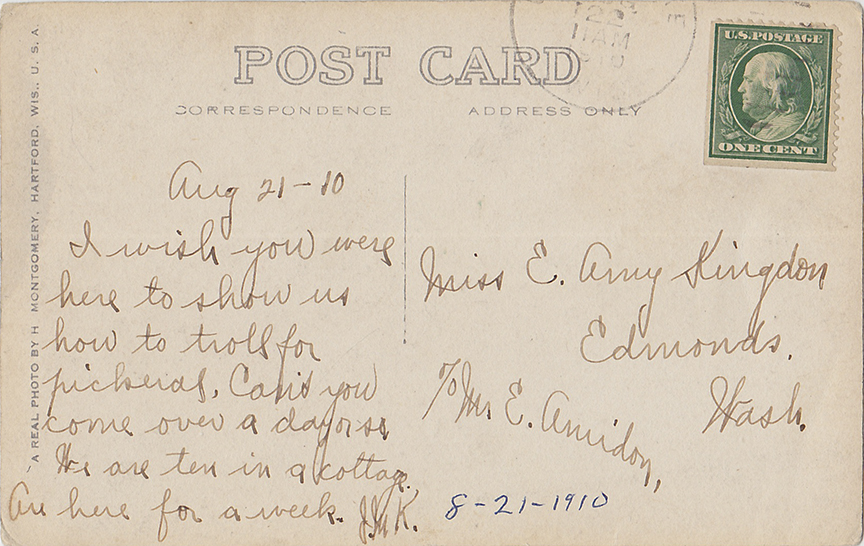 POST CARD
CORRESPONDENCE
ADDRESS ONLY
22
11 AM
U.S. POSTAGE
ONE CENT
A REAL PHOTO BY H MONTGOMERY, HARTFORD, WIS., U. S. A.
Aug 21-10
I wish you were
here to show us
how to troll for
pickeral. Can't you
come over a day or so
We are ten in a cottage.
Are here for a week. J.McK.
Miss E. Amy Kingdon
Edmonds.
Wash.
℅ Mr E. Amidon,
8-21-1910